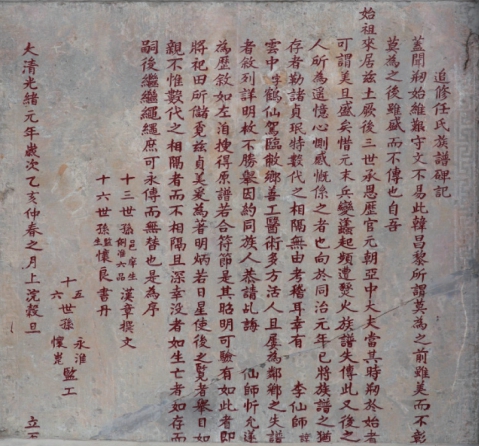 追修任氏族譜碑記
蓋聞剏始維艱守文不易此韓昌黎所謂莫為之前雖美而不彰
莫為之後雖盛而不傳也自吾
始祖來居茲土厥後三世承恩歷官元朝亞中大夫當其時剏於始者
可謂美且盛矣惜元末兵變蠭起頻遭燹火族譜失傳此又後之
人所為遥憶心惻感慨係之者也向於同治元年已將族譜之猶
存者勒諸貞珉特數代之相隔無由考稽耳幸有 李仙師
雲中鶴仙駕臨敝鄉善工醫術多方活人且屢為鄰鄉之失譜
者敘列詳明枚不勝舉因約同族人恭請此誨 仙師忻允遂
為歷敘如左洎搜得原譜若合符節是其昭明可驗有如此者即
將祀田所儲竟茲貞美爰為者明炳若日星使後之覽者舉目如
親不惟數代之相隔者而不相隔且深幸沒者如生亡者如存而
嗣後繼繼繩繩庶可永傳而無替也是為序
十三世孫邑庠生例准六品漢章撰文
十六世孫監生懷良書丹
十五世孫永淮監工
十六世孫懷
大清光緒元年歲次乙亥仲春之月上浣穀旦 立